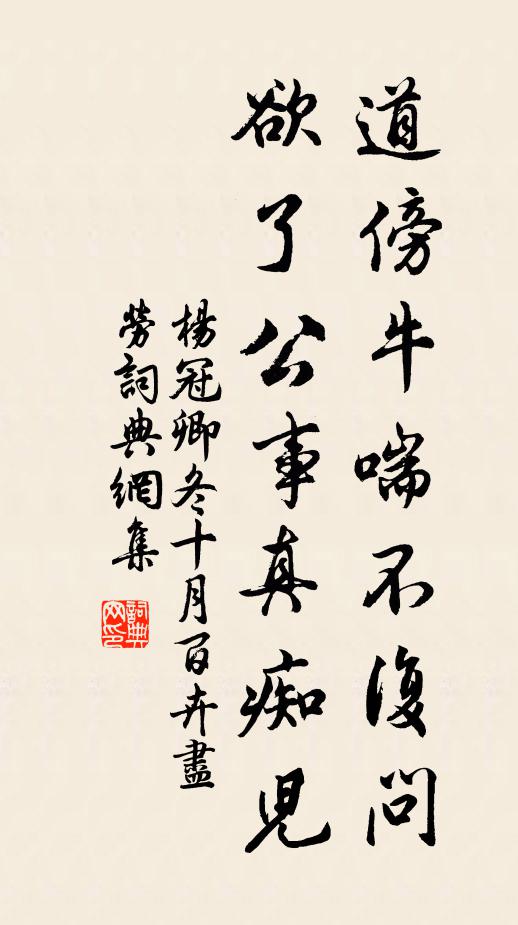 道傍牛喘不復問
欲了公事真痴児
楊冠卿冬十月百卉盡
勞詞典網集
詞典网印